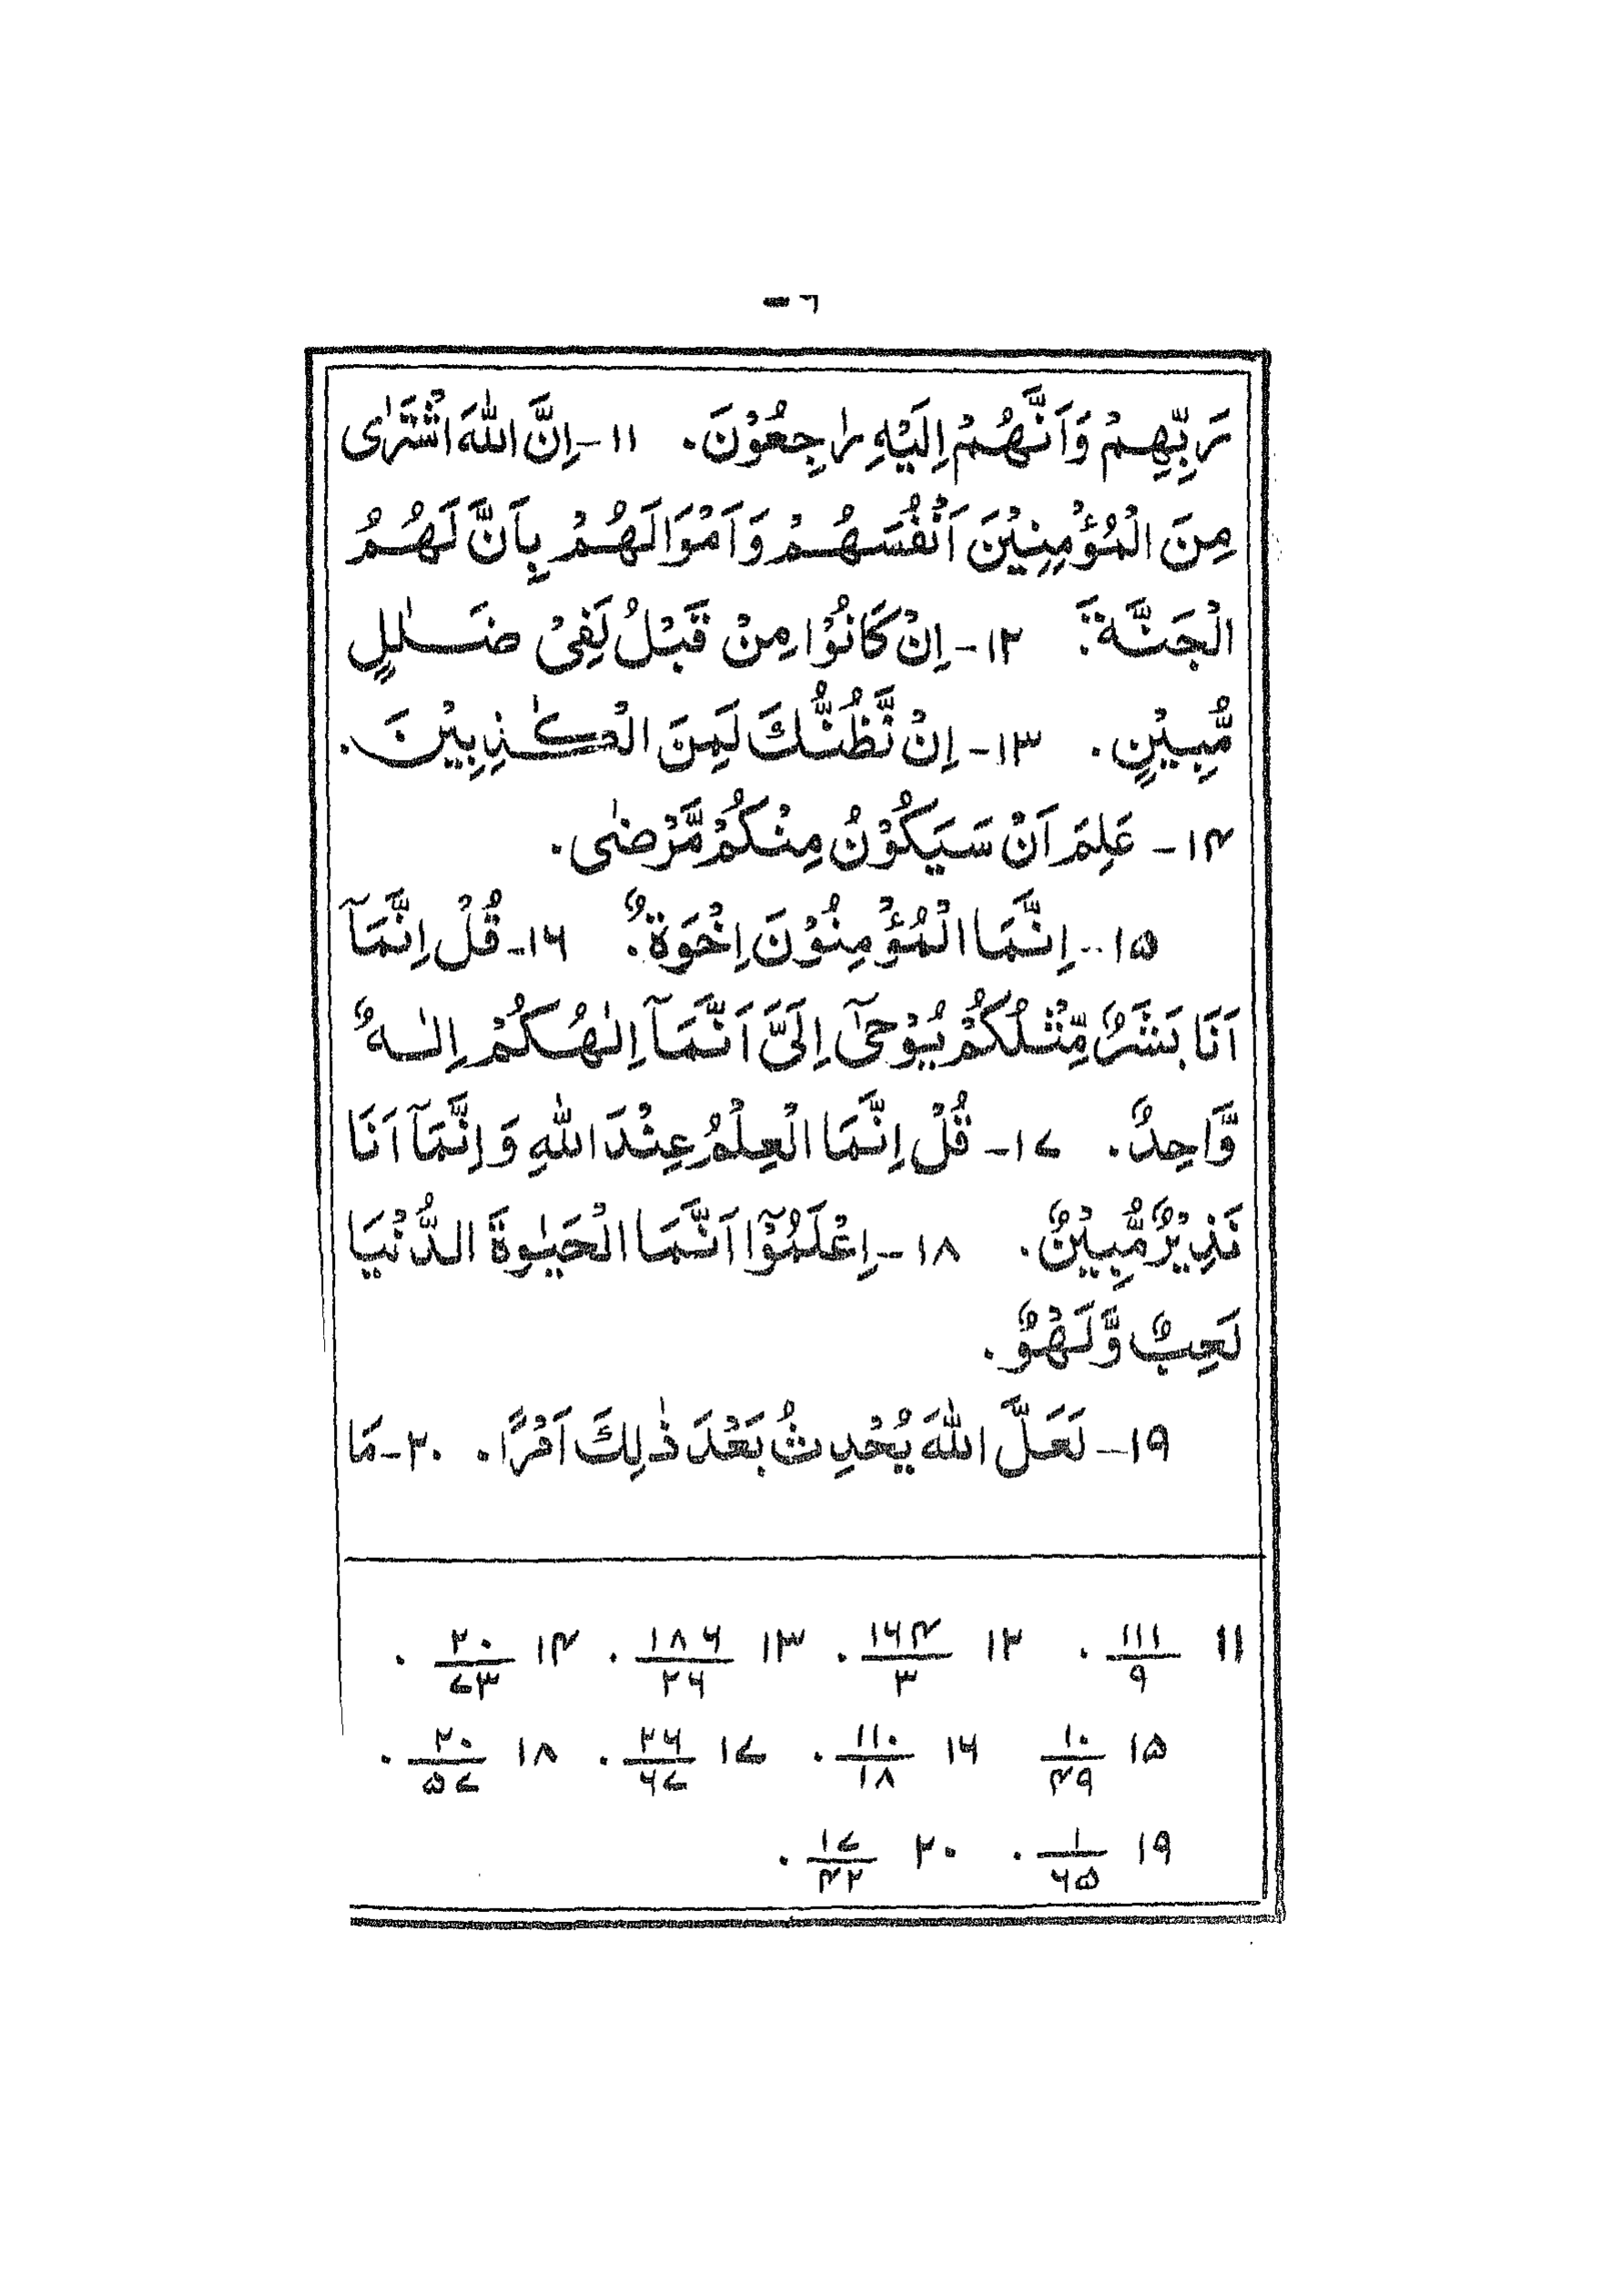 رَبِّهِمْ وَاَنَّهُمْ اِلَيْهِ رٰجِعُوْنَ. ۱۱- اِنَّ اللّٰهَ اشْتَرٰى
مِنَ الْمُؤْمِنِيْنَ اَنْفُسَهُمْ وَاَمْوَالَهُمْ بِاَنَّ لَهُمُ
الْجَنَّةَ. ۱۲- اِنْ كَانُوْا مِنْ قَبْلُ لَفِىْ ضَلٰلٍ
مُّبِيْنٍ. ۱۳- اِنْ نَّظُنُّكَ لَمِنَ الْكٰذِبِيْنَ.
۱۴- عَلِمَ اَنْ سَيَكُوْنُ مِنْكُمْ مَّرْضٰى.
۱۵- اِنَّمَا الْمُؤْمِنُوْنَ اِخْوَةٌ. ۱۶- قُلْ اِنَّمَآ
اَنَا بَشَرٌ مِّثْلُكُمْ يُوْحٰٓى اِلَىَّ اَنَّمَآ اِلٰهُكُمْ اِلٰهٌ
وَّاحِدٌ. ۱۷- قُلْ اِنَّمَا الْعِلْمُ عِنْدَ اللّٰهِ وَاِنَّمَآ اَنَا
نَذِيْرٌ مُّبِيْنٌ. ۱۸- اِعْلَمُوْٓا اَنَّمَا الْحَيٰوةُ الدُّنْيَا
لَعِبٌ وَّلَهْوٌ.
۱۹- لَعَلَّ اللّٰهَ يُحْدِثُ بَعْدَ ذٰلِكَ اَمْرًا. ۲۰- مَا
۱۱ ۱۱۱/۹. ۱۲ ۱۶۴/۳. ۱۳ ۱۸۶/۲۶. ۱۴ ۲۰/۷۳.
۱۵ ۱۰/۴۹ ۱۶ ۱۱۰/۱۸. ۱۷ ۲۶/۶۷. ۱۸ ۲۰/۵۷.
۱۹ ۱/۶۵. ۲۰ ۱۷/۴۲.